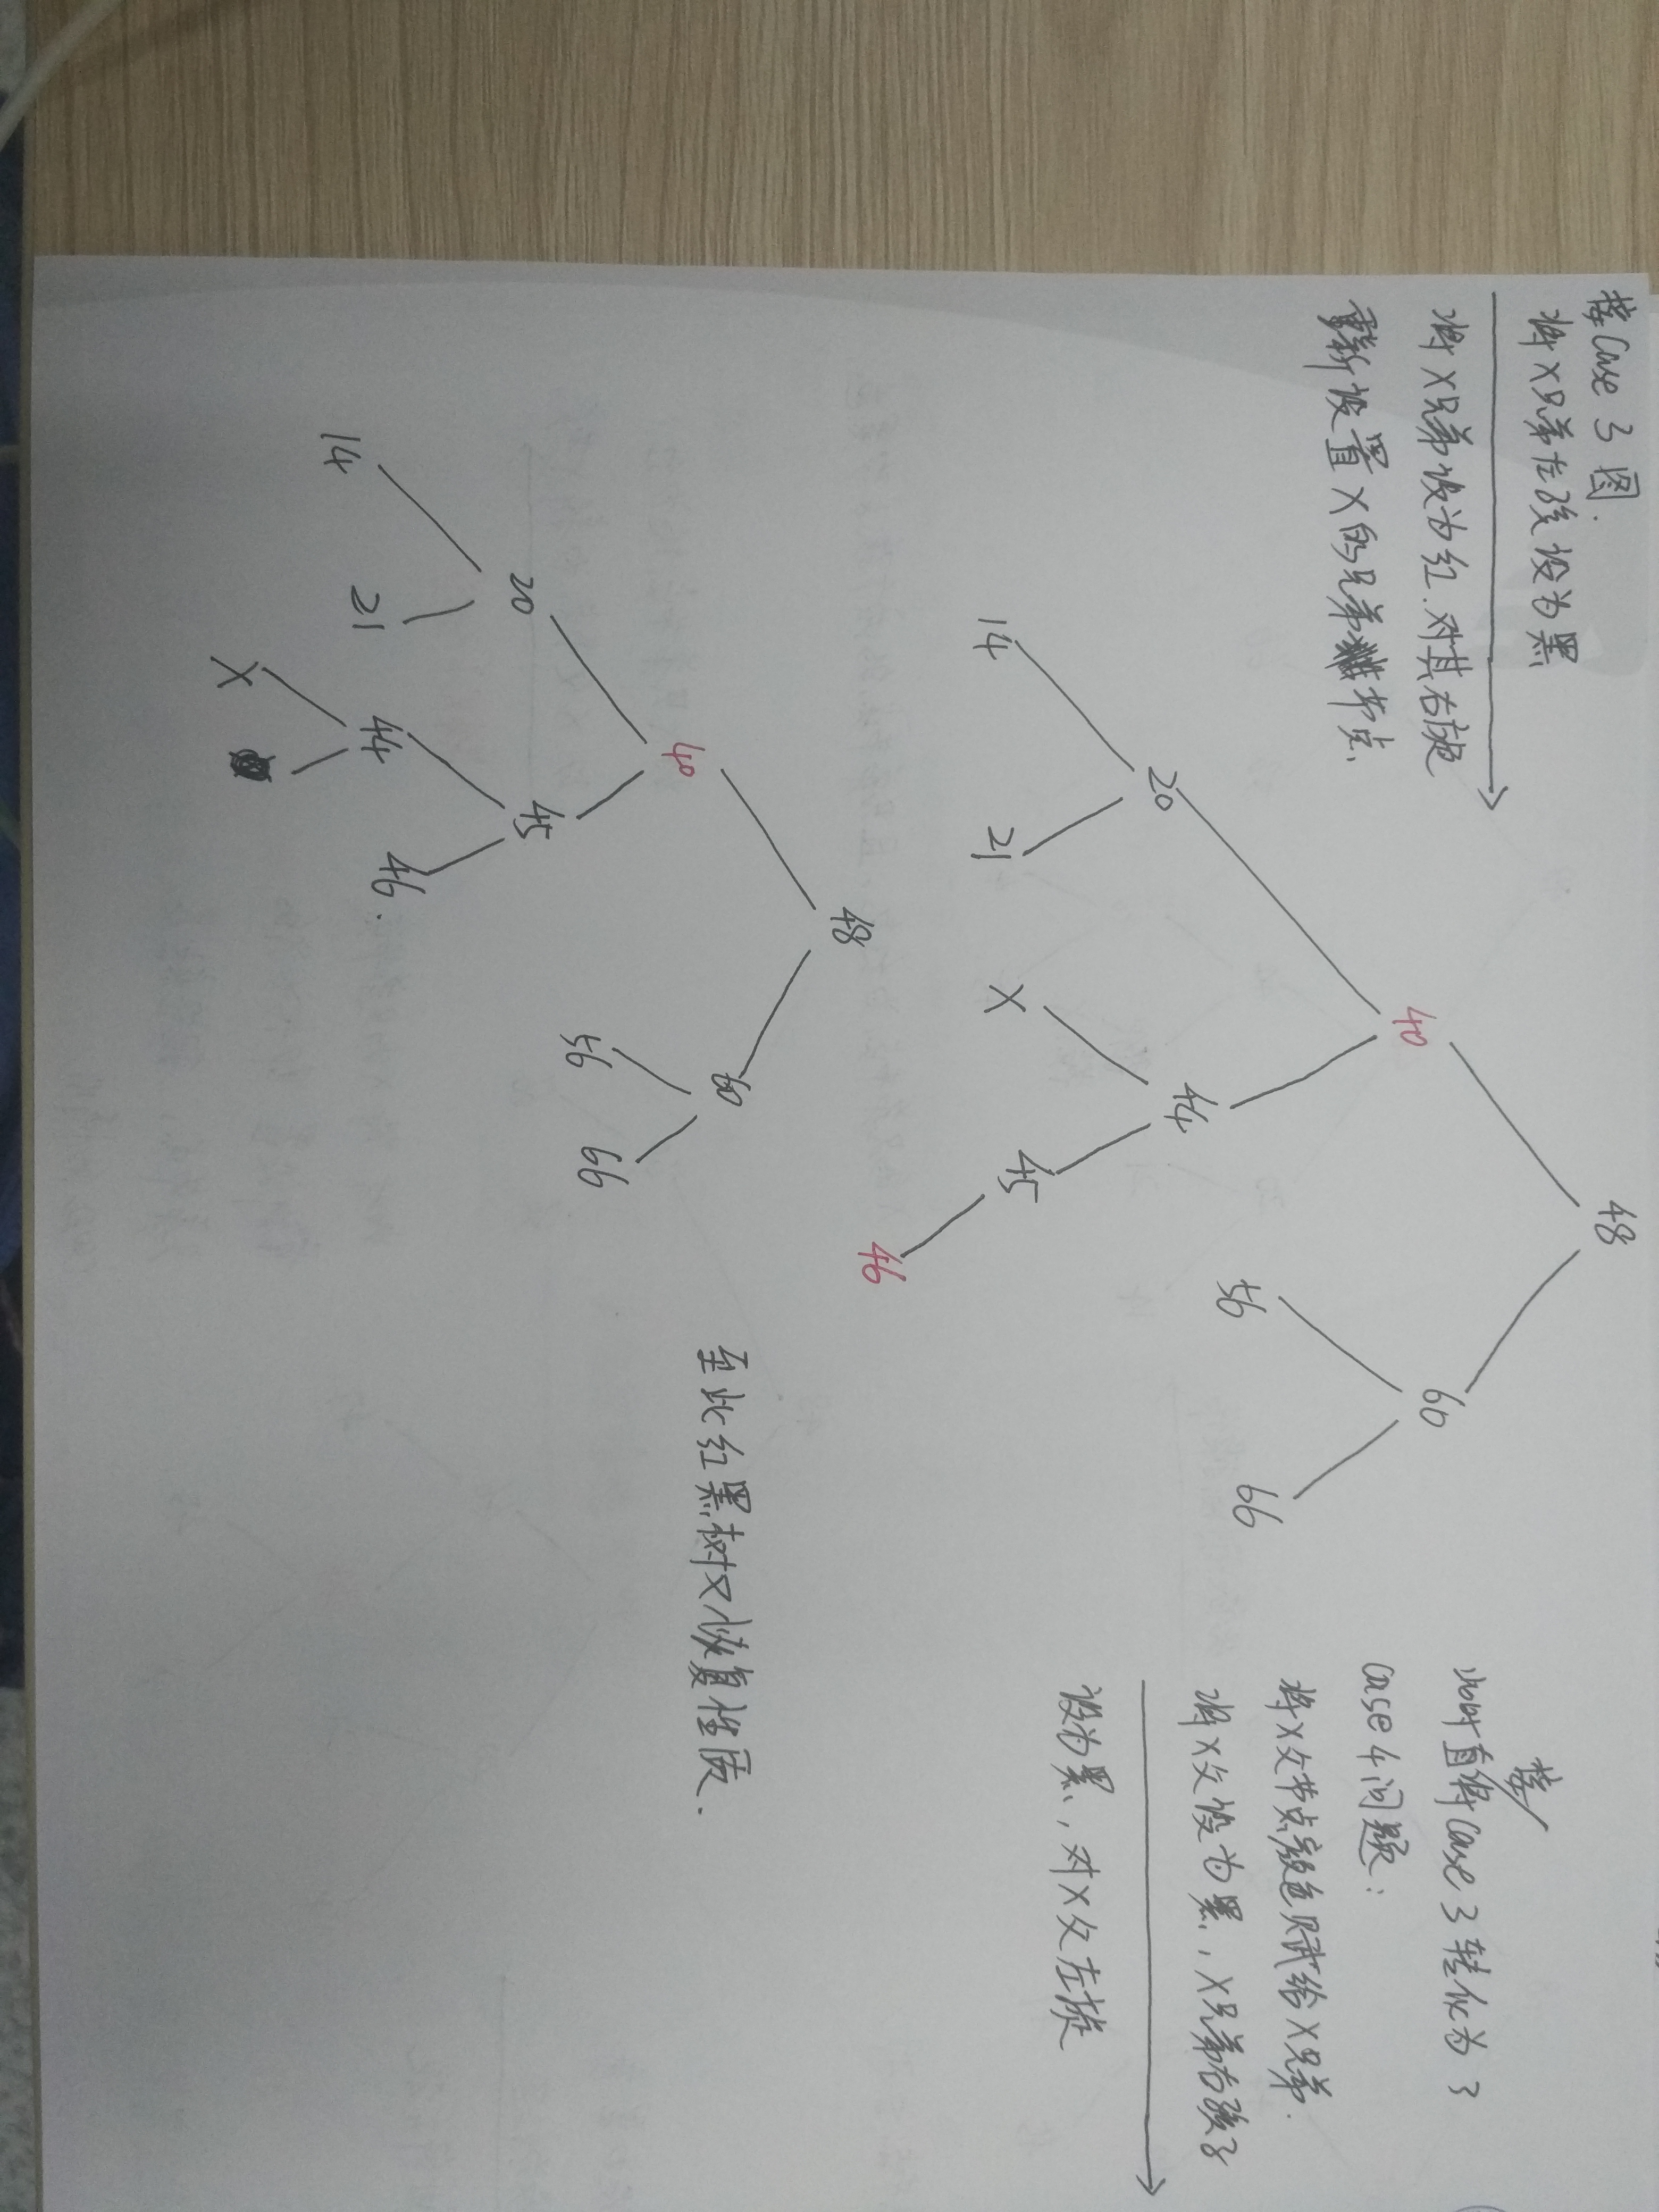 接Case 3 图.
将X兄弟左孩设为黑
将X兄弟设为红.对其右旋
重新设置X的兄弟节点.
48
40 60
20 44 56 66
14 21 X 45
46
接
此时直将Case 3 转化为了
Case 4问题:
将X父节点颜色赋给X兄弟.
将X父设为黑,X兄弟右孩子
设为黑,对X父左旋
48
40 60
20 45 56 66
14 21 44 46.
X
至此红黑树又恢复性质.